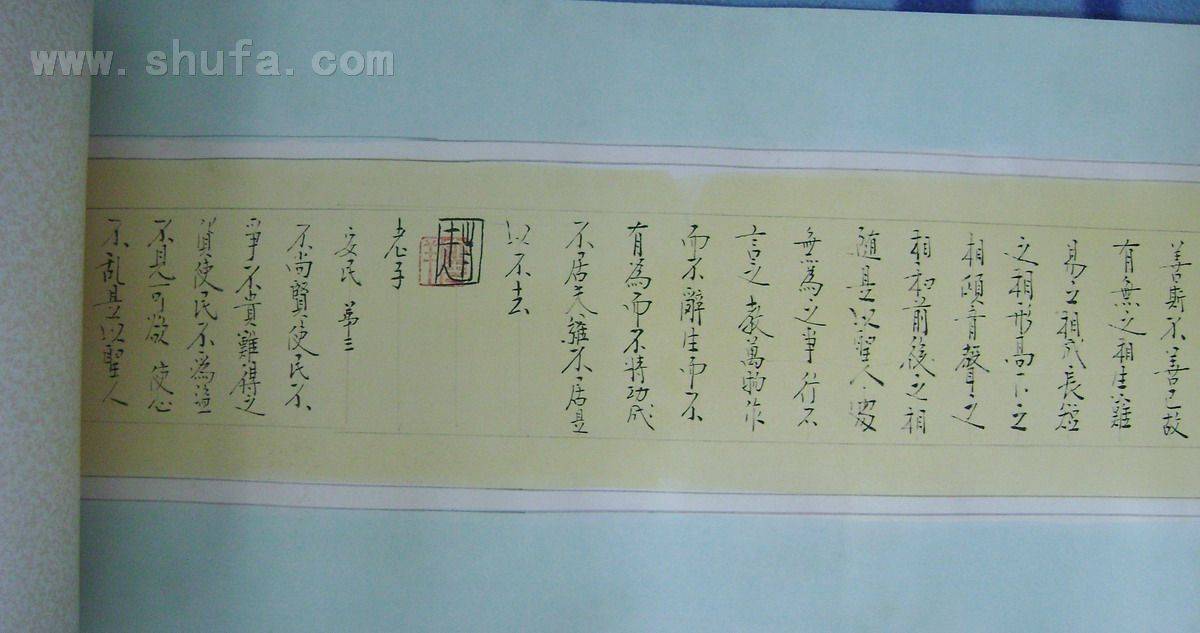 www.shufa.com
善斯不善已故
有無之相生難
易之相成長短
之相形高下之
相傾音聲之
相和前後之相
随是以聖人處
無為之事行不
言之教萬物作
而不辭生而不
有為而不恃功成
不居夫惟不居是
以不去
趙
老子
安民 第三
不尚賢使民不
爭不貴難得之
貨使民不為盜
不見可欲 使心
不乱是以聖人